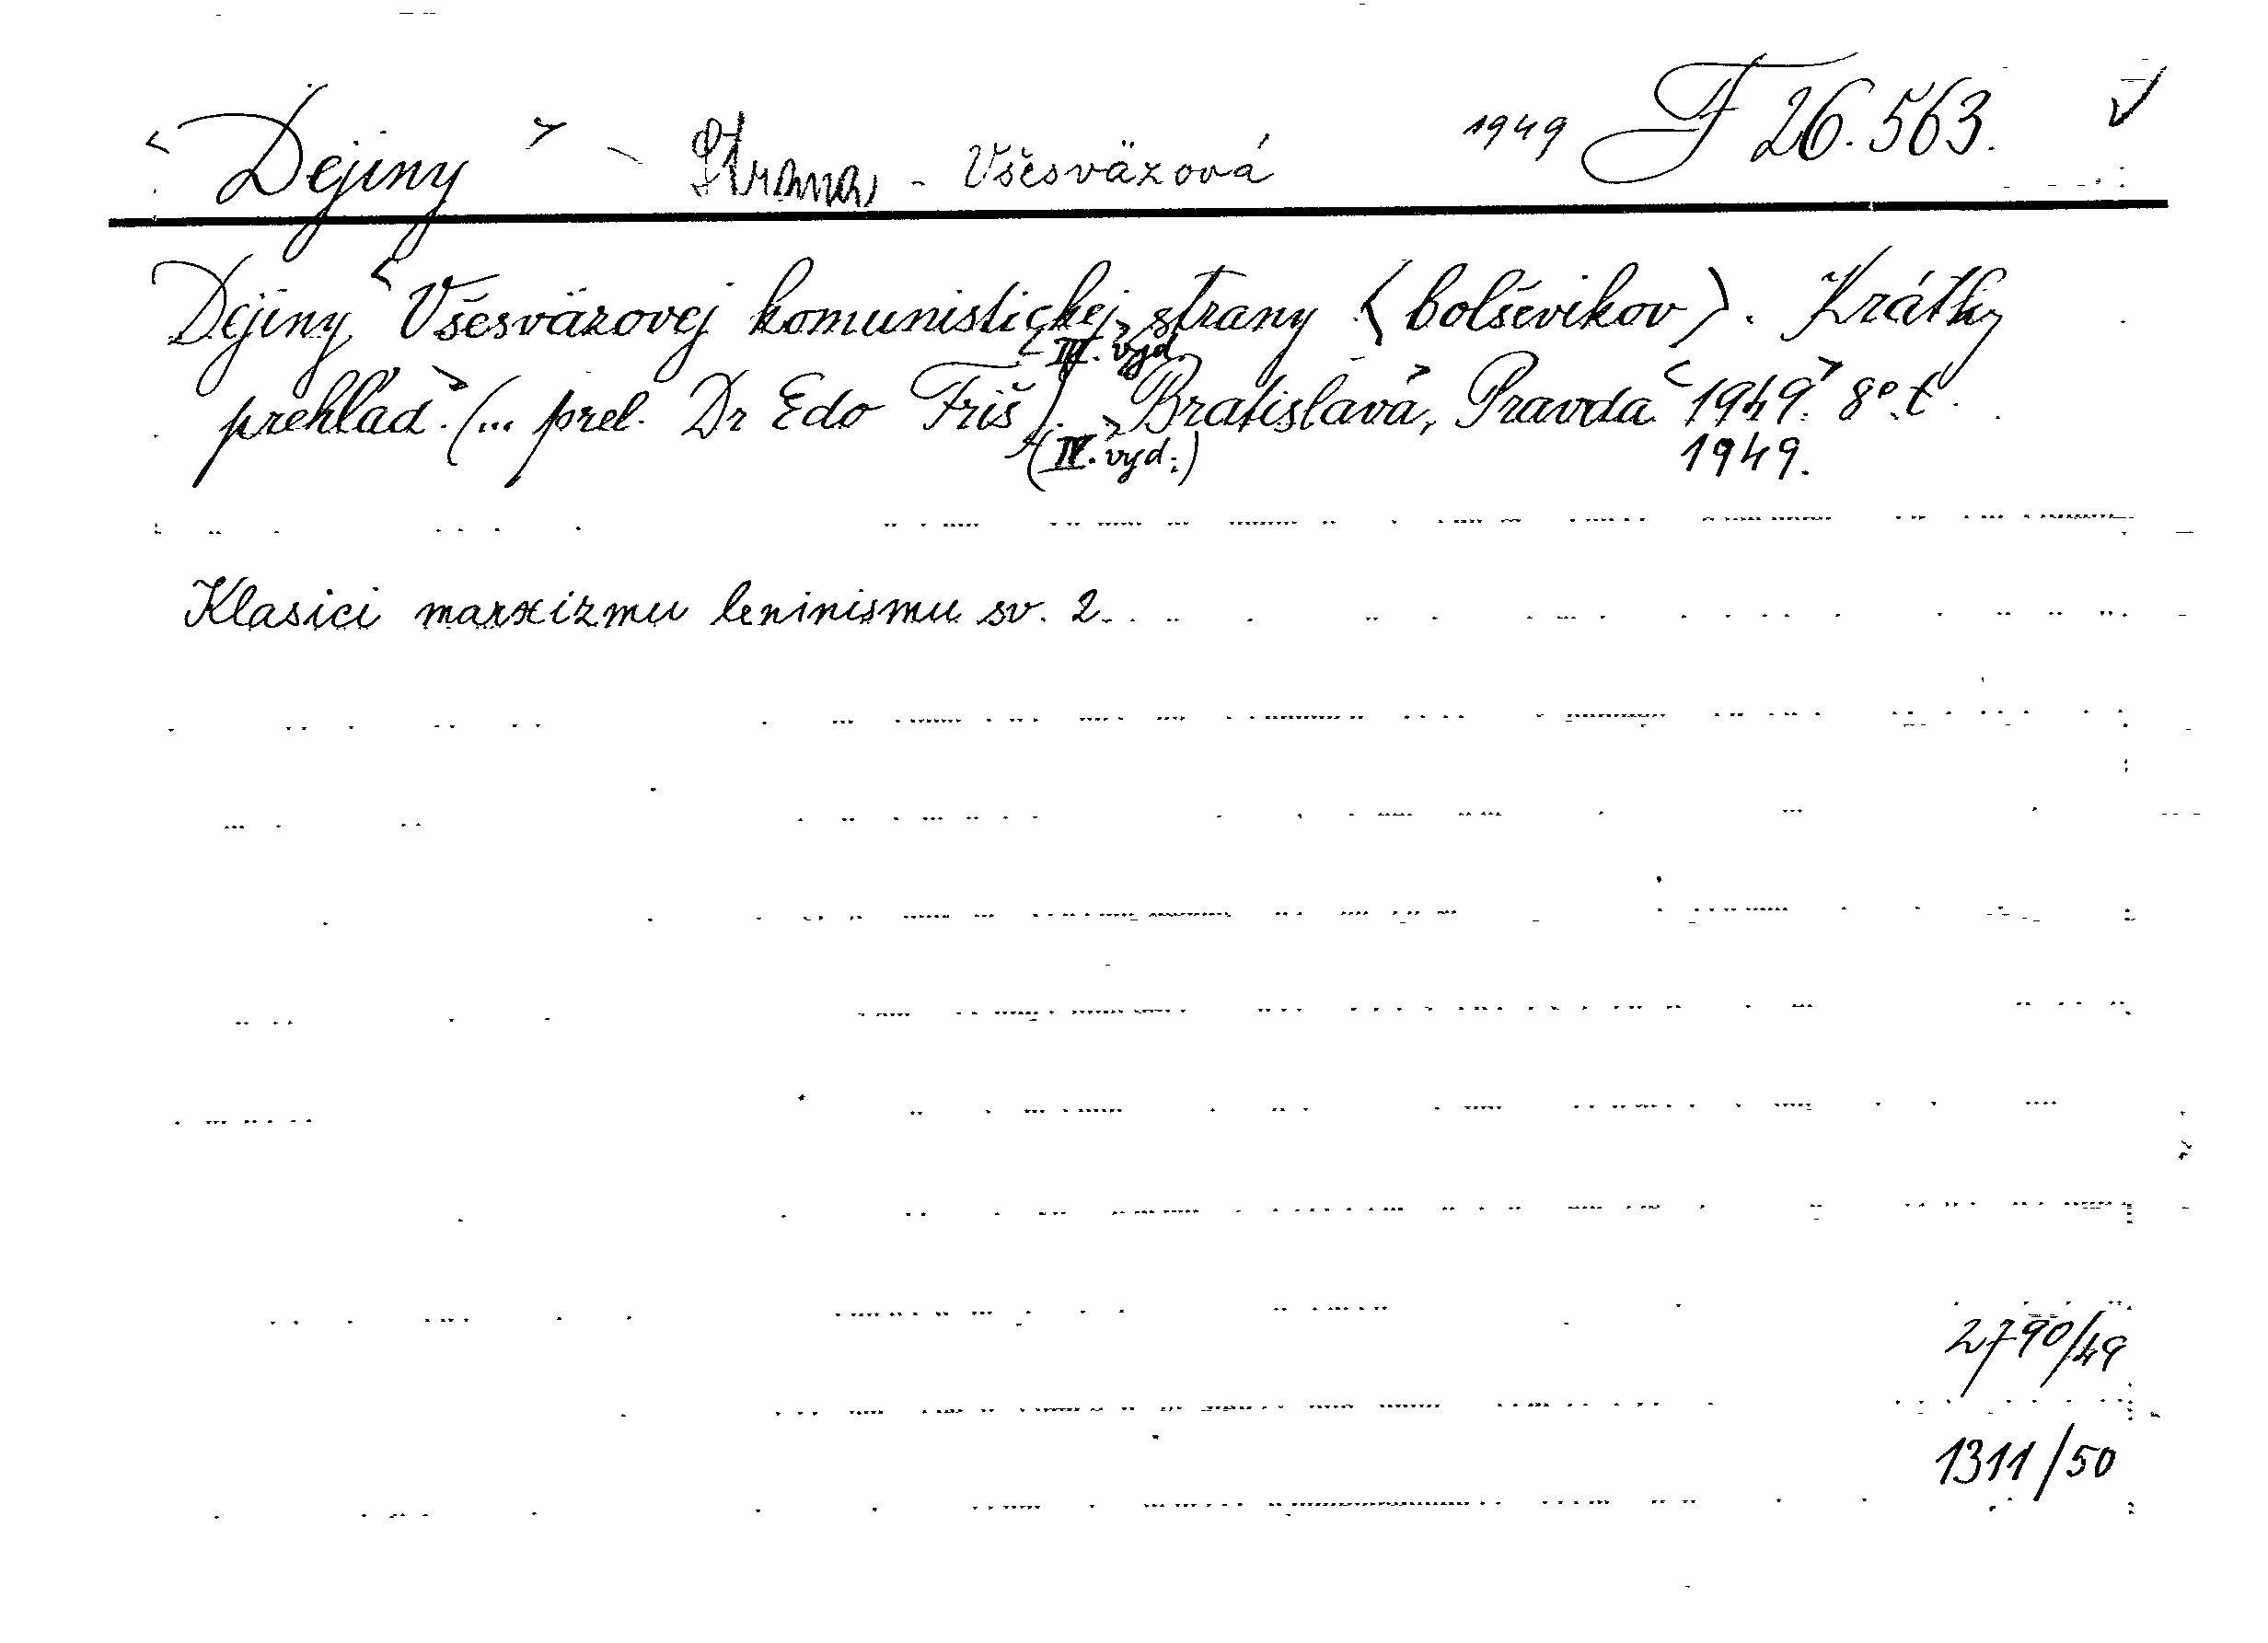 < Dejiny > - Strana - Všesväzová 1949 F 26.563. √
Dejiny < Všesväzovej komunistickej > strany (bolševikov). Krátky
III. vyd.
prehľad. > (... prel. Dr Edo Friš). > Bratislava, Pravda < 1949. > 8° t.
(IV. vyd.) 1949.
Klasici marxizmu leninismu sv. 2.
2790/49
1311/50